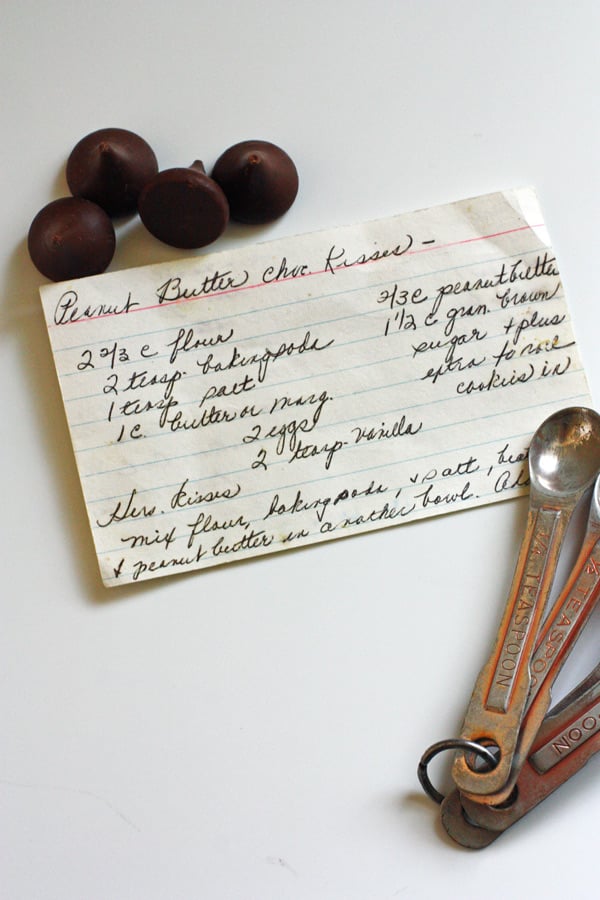 Peanut Butter choc. Kisses –
2 2/3 c flour
2 teasp. baking soda
1 teasp salt
1 c. butter or marg.
2 eggs
2 teasp. vanilla
2/3 c peanut butter
1 1/2 c gran. brown
sugar + plus
extra to roll
cookies in
Hers. Kisses
mix flour, baking soda, & salt,
& peanut butter in another bowl.
1/4 TEASPOON
1/2 TEASPOON